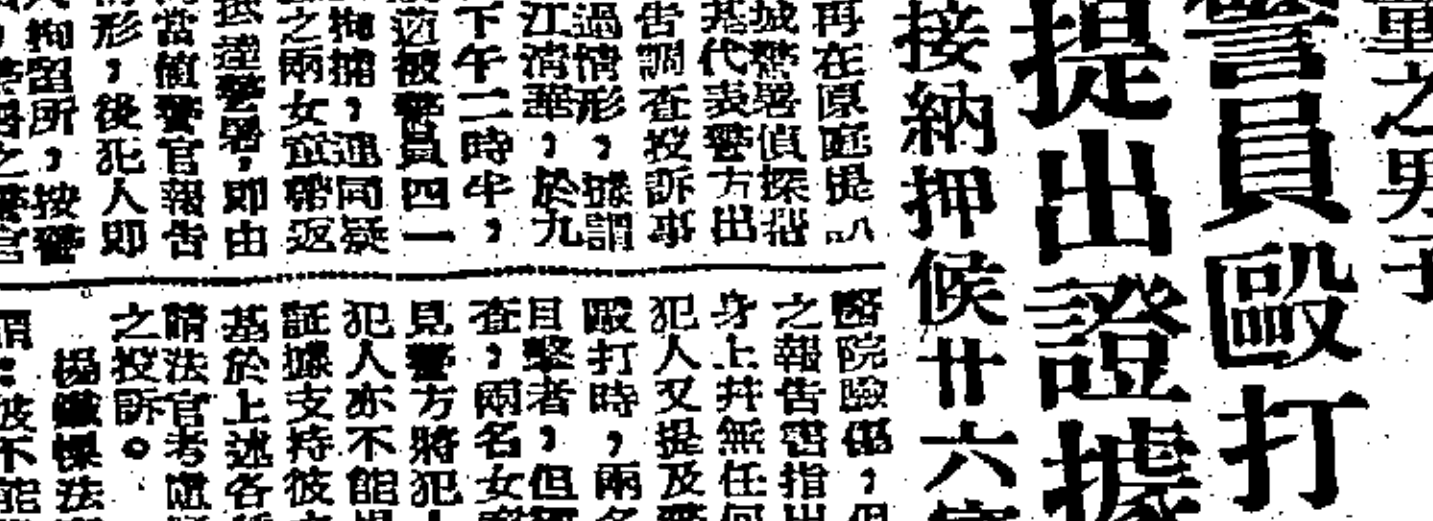 童之男子
警員毆打
提出證據
接納押候廿六
再在原庭提
城警署偵探
基代表警方出
告調查投訴事
過情形，據謂
江清華，於九
下午二時半，
被警員四一
拘捕，連同疑
之兩女童帶返
抵達警署，即由
當值警官報告
形，後犯人即
拘留所，按警
署之警官
醫院驗傷，但
之報告書指出
身上并無任何
犯人又提及
毆打時，兩名
目擊者，但
查，兩名女
見警方將犯
犯人亦不能
証據支持彼
基於上述各
請法官考慮
之投訴。
楊鐵樑法
彼不能